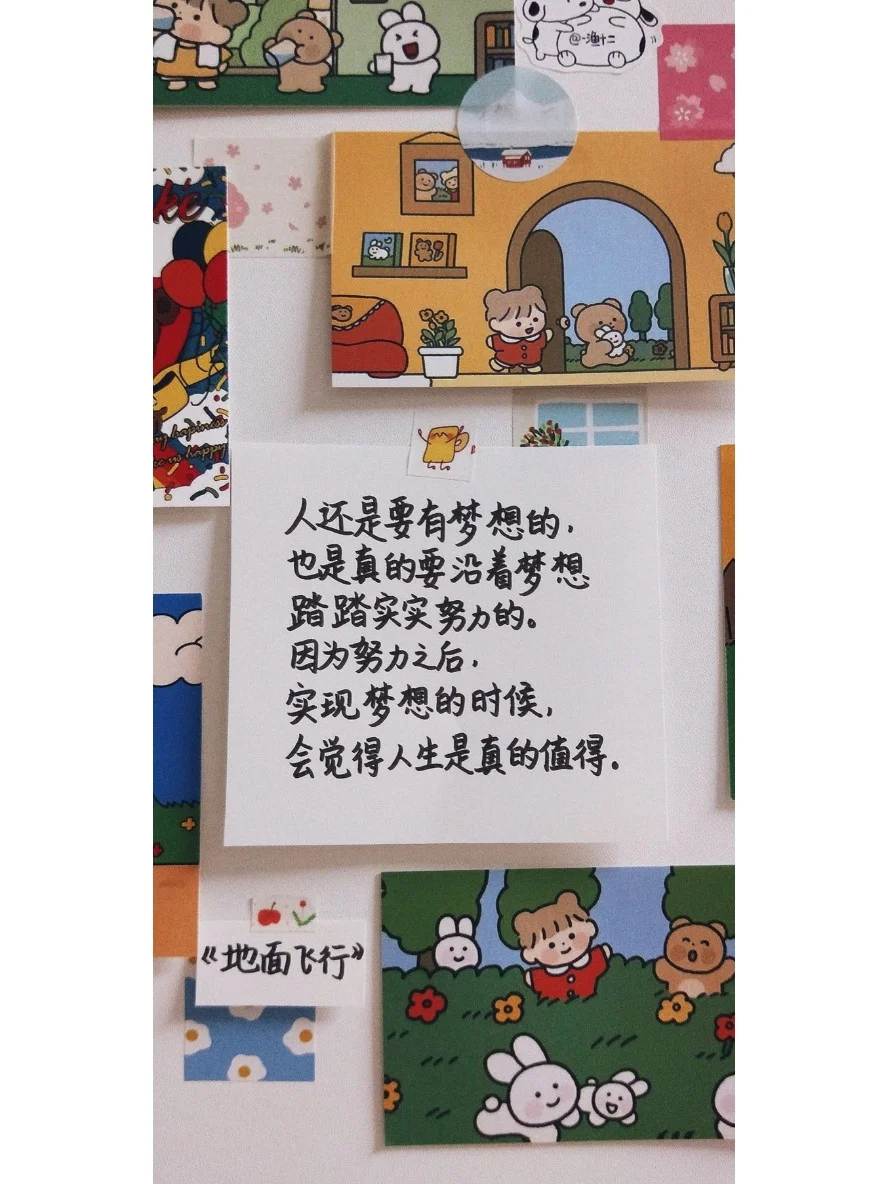 @一渔十二
ke
人还是要有梦想的,
也是真的要沿着梦想
踏踏实实努力的。
因为努力之后,
实现梦想的时候,
会觉得人生是真的值得。
《地面飞行》